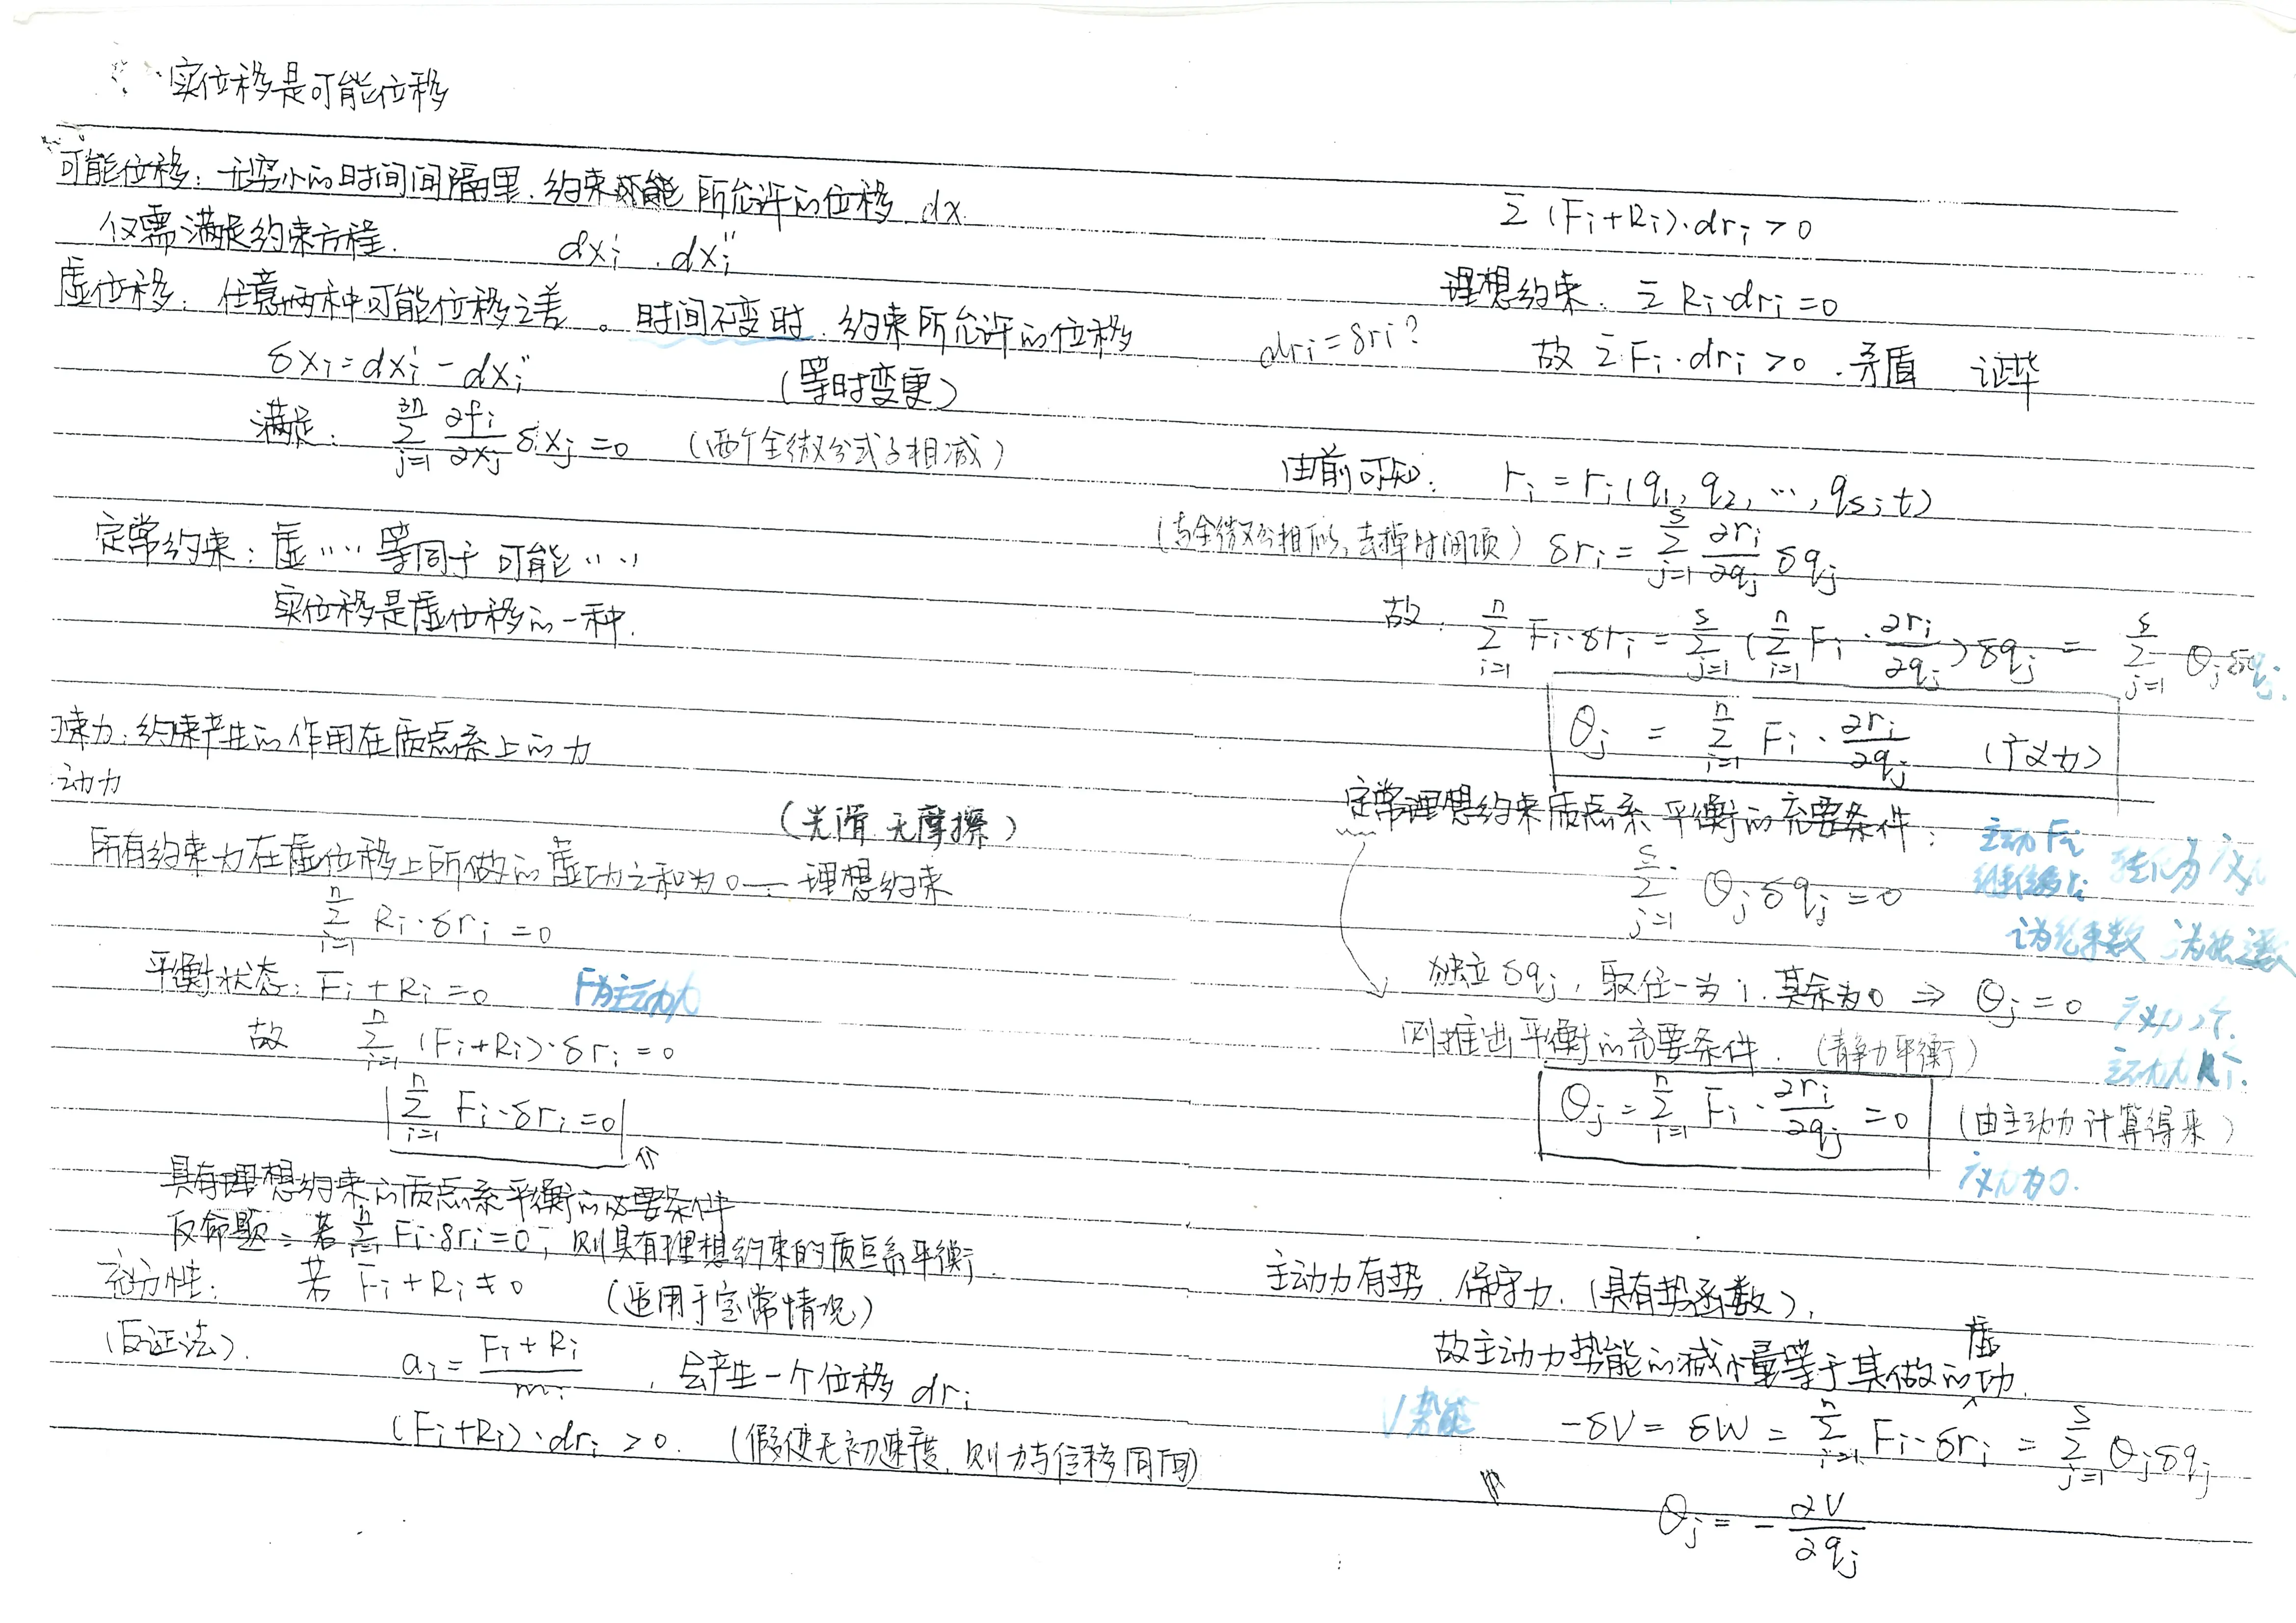 实位移是可能位移
可能位移：无穷小的时间间隔里，约束 所允许的位移 dx
仅需满足约束方程. dxᵢ' . dxᵢ''
虚位移：任意两种可能位移之差。时间不变时，约束所允许的位移
δxᵢ = dxᵢ' - dxᵢ'' （等时变更）
满足： ∑_{j=1}^{3n} ∂fᵢ/∂xⱼ δxⱼ = 0 （两个全微分式子相减）
定常约束：虚…… 等同于 可能……
实位移是虚位移的一种.
束力：约束产生的作用在质点系上的力
动力
（光滑 无摩擦）
所有约束力在虚位移上所做的虚功之和为0 — 理想约束
∑_{i=1}^{n} Rᵢ·δrᵢ = 0
平衡状态：Fᵢ + Rᵢ = 0 F为主动力
故 ∑_{i=1}^{n} (Fᵢ+Rᵢ)·δrᵢ = 0
∑_{i=1}^{n} Fᵢ·δrᵢ = 0 ⇑
具有理想约束的质点系平衡的必要条件
反命题：若 ∑_{i=1}^{n} Fᵢ·δrᵢ=0，则具有理想约束的质点系平衡.
充分性： 若 Fᵢ + Rᵢ ≠ 0 （适用于定常情况）
（反证法）. aᵢ = (Fᵢ + Rᵢ)/mᵢ ，会产生一个位移 drᵢ
(Fᵢ+Rᵢ)·drᵢ > 0. （假使无初速度，则力与位移同向）
∑ (Fᵢ+Rᵢ)·drᵢ > 0
理想约束. ∑ Rᵢ·drᵢ = 0
drᵢ = δrᵢ? 故 ∑ Fᵢ·drᵢ > 0 . 矛盾 证毕
由前可知： rᵢ = rᵢ(q₁, q₂, …, qₛ; t)
（与全微分相似，去掉时间项） δrᵢ = ∑_{j=1}^{s} ∂rᵢ/∂qⱼ δqⱼ
故. ∑_{i=1}^{n} Fᵢ·δrᵢ = ∑_{j=1}^{s} (∑_{i=1}^{n} Fᵢ·∂rᵢ/∂qⱼ) δqⱼ = ∑_{j=1}^{s} θⱼδqⱼ.
θⱼ = ∑_{i=1}^{n} Fᵢ·∂rᵢ/∂qⱼ （广义力）
定常理想约束质点系平衡的充要条件：
主动Fᵢ 转化为广义
∑_{j=1}^{s} θⱼδqⱼ = 0
独立δqⱼ，取任一为1，其余为0 ⇒ θⱼ = 0
则推出平衡的充要条件. （静力平衡）
θⱼ = ∑_{i=1}^{n} Fᵢ·∂rᵢ/∂qⱼ = 0 （由主动力计算得来）
广义力为0.
主动力有势. 保守力.（具有势函数），
故主动力势能的减小量等于其做的虚功.
V势能 -δV = δW = ∑_{i=1}^{n} Fᵢ·δrᵢ = ∑_{j=1}^{s} θⱼδqⱼ
θⱼ = -∂V/∂qⱼ